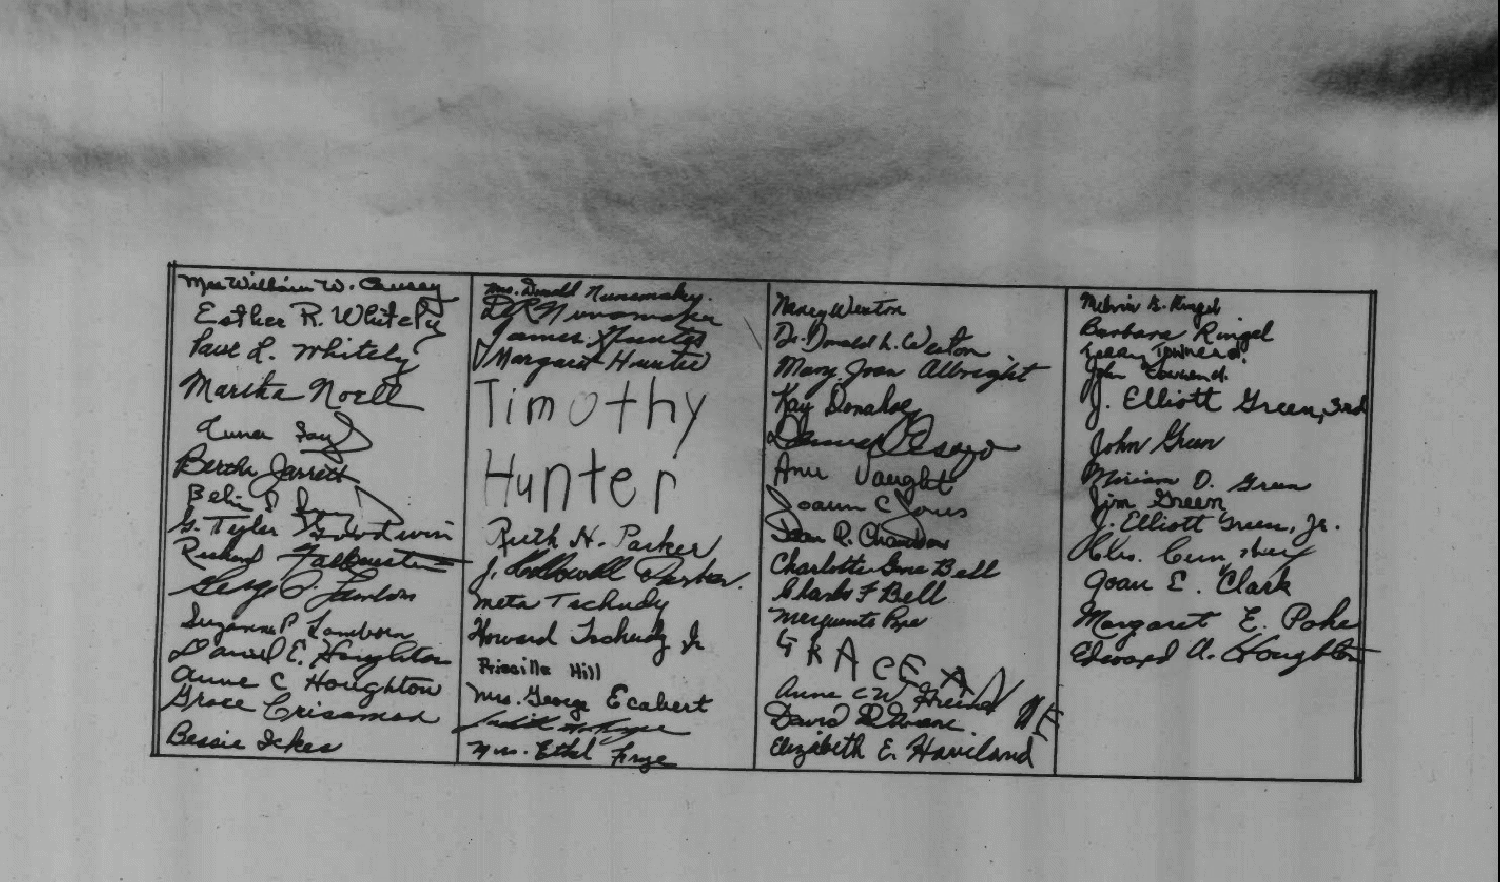 Mrs William W. Causey
Esther R. Whitely
Paul L. Whitely
Martha Noell
Bertha Jarrett
G. Tegler Goodwin
Richard
George P. Lamborn
Suzanne P Lamborn
Daniel E. Houghton
Anne C Houghton
Grace Crissman
Bessie Ickes
Mrs. Donald Nunemaker
D R Nunemaker
James Hunter
Margaret Hunter
Timothy
Hunter
Ruth H. Parker
J. Hollowell Parker.
Meta Tschudy
Howard Tschudy Jr
Priscilla Hill
Mrs. George Ecabert
Judith A. Frye
Mrs. Ethel Frye
Mary Weston
Dr. Donald L. Weston
Mary Joan Albright
Kay Donahoe
Anne Vaught
Joann C Jones
Charlotte Gene Bell
Charles F Bell
Marguerite Pope
GRACE ANNE
Anne CW Freund
David
Elizabeth E. Haviland
Melvin G. Ringel
Barbara Ringel
Terry Townend.
John Townend.
J. Elliott Green, 3rd
John Green
Miriam O. Green
Jim Green
J. Elliott Green, Jr.
Joan E. Clark
Margaret E. Poke
Edward A. Houghton